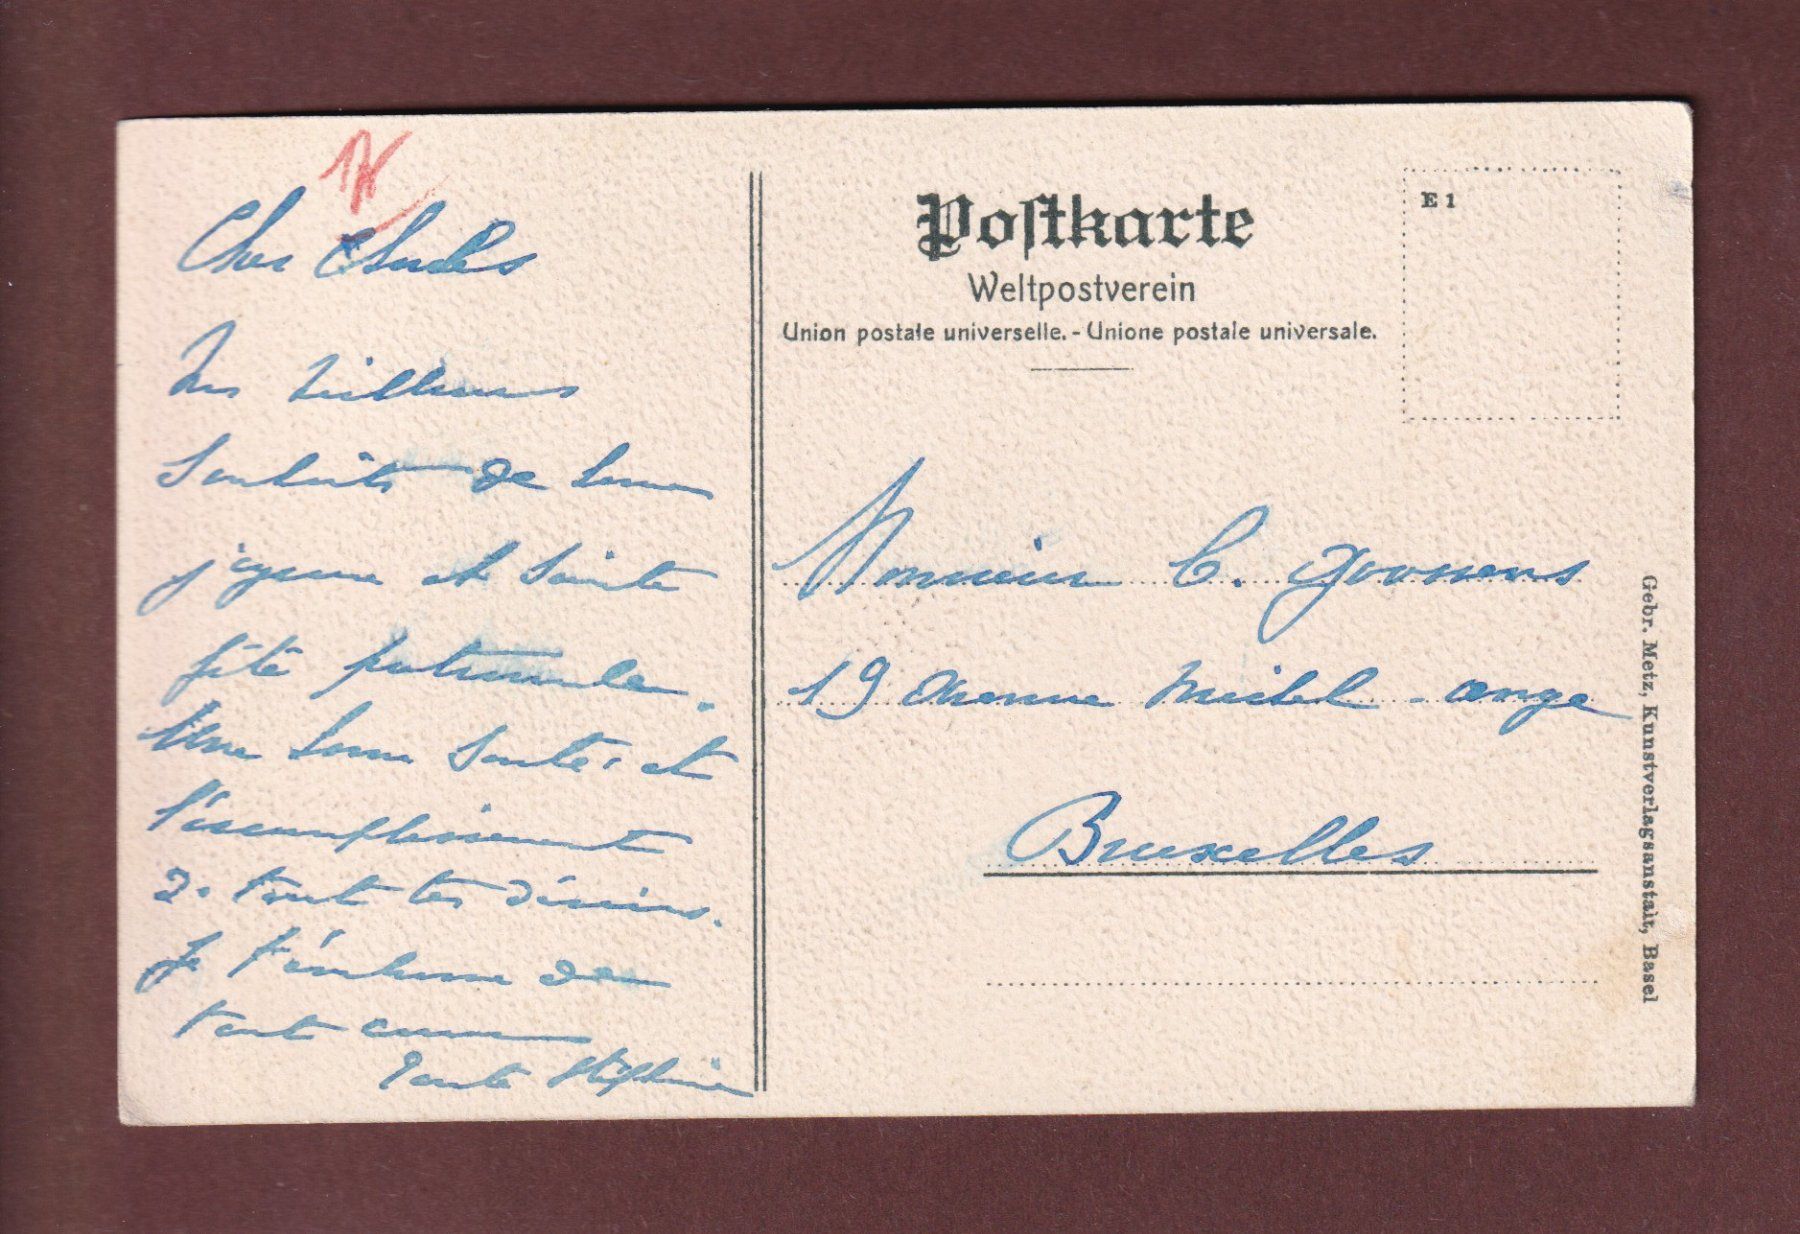 Cher Charles
Mes meilleurs
souhaits de bonne
joyeuse et sainte
fête patronale.
Une bonne santé et
l'accomplissement
de tout tes désirs.
Je t'embrasse de
tout cœur
Tante Stéphanie
Postkarte
Weltpostverein
Union postale universelle. - Unione postale universale.
E 1
Monsieur C. Goossens
19 Avenue Michel - ange
Bruxelles
Gebr. Metz, Kunstverlagsanstalt, Basel